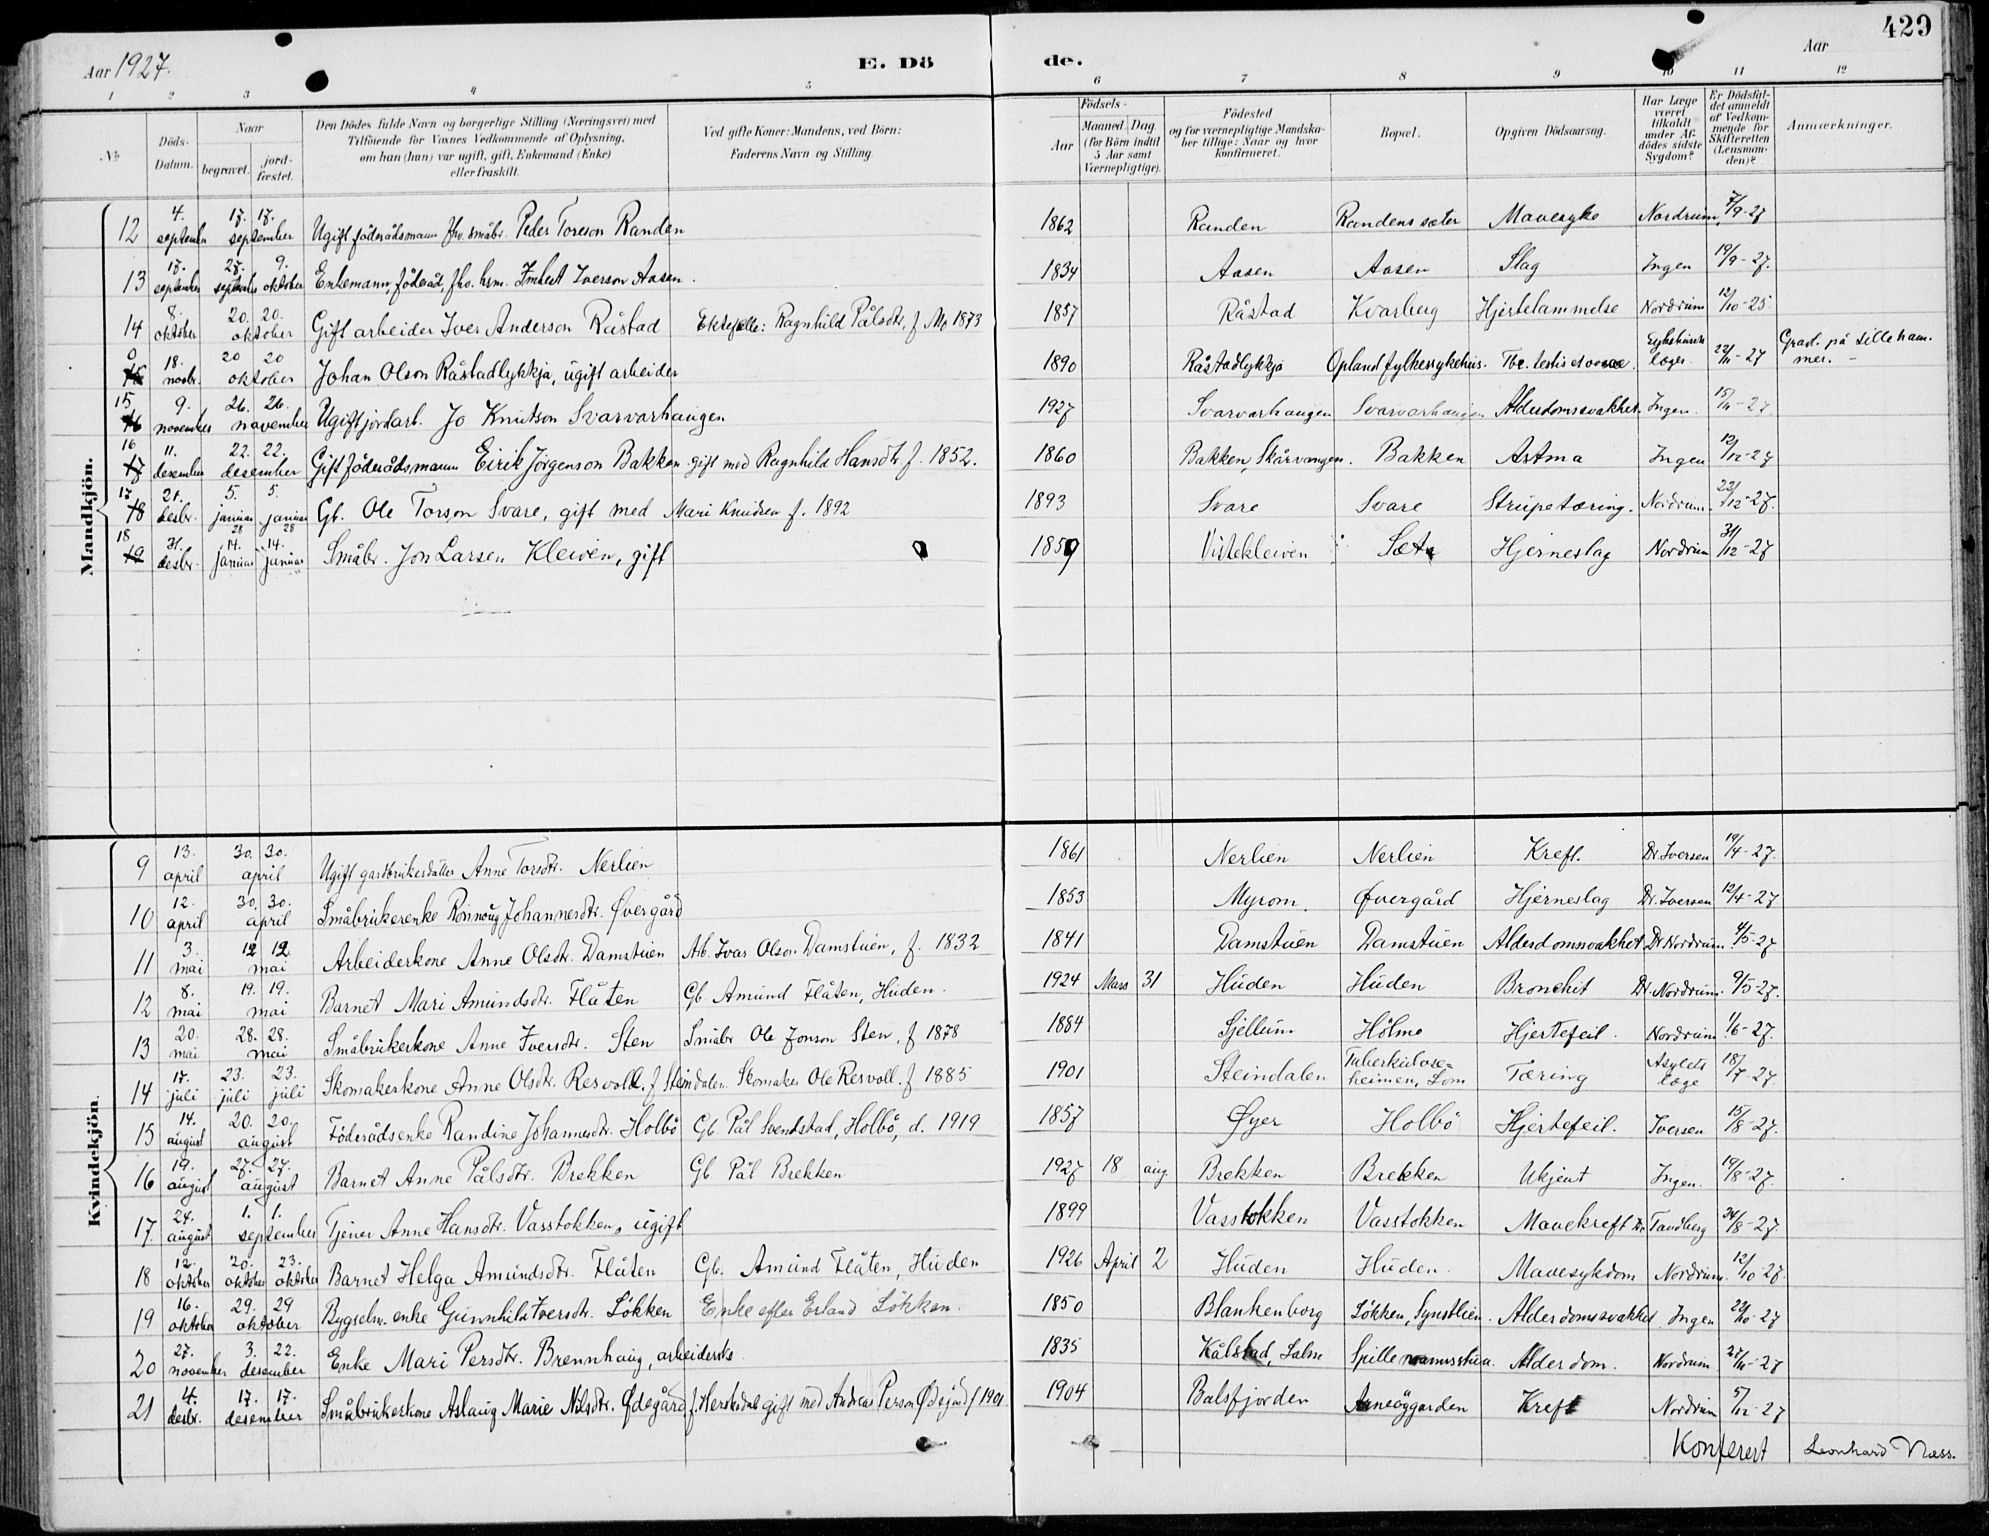 429
Aar 1927.
E. Dö de.
Aar
1 2 3 4 5 6 7 8 9 10 11 12
No
Döds-Datum.
Naar begravet. jordfæstet.
Den Dödes fulde Navn og borgerlige Stilling (Næringsvei) med Tilföiende for Voxnes Vedkommende af Oplysning, om han (hun) var ugift, gift, Enkemand (Enke) eller fraskilt.
Ved gifte Koner: Mandens, ved Börn: Faderens Navn og Stilling.
Födsels-
Aar Maaned. Dag (for Börn indtil 5 Aar samt Værnepligtige).
Födested og for værnepligtige Mandskaber tillige: Naar og hvor konfirmeret.
Bopæl.
Opgiven Dödsaarsag.
Har Læge været tilkaldt under Afdödes sidste Sygdom?
Er Dödsfaldet anmeldt af Vedkommende for Skifteretten (Lensmanden)?
Anmærkninger.
Mandkjön.
12 4. september 17. 17. september Ugift föderådsmann fhv. småbr. Peder Toreson Randen 1862 Randen Randens sæter Mavesyke Nordrum 7/9-27
13 17. september 27. september 9. oktober Enkemann, föderåd, fhv. hsm. Imbert Iverson Aasen. 1834 Aasen Aasen Slag Ingen 19/9-27.
14 8. oktober 20. 20. oktober Gift arbeider Iver Anderson Råstad Ektefelle: Ragnhild Pålsdtr, f Mo 1873 1857 Råstad Kvarberg Hjertelammelse Nordrum 12/10-25.
0 15 18. novbr. 20 20 oktober Johan Olson Råstadlykkja, ugift arbeider 1890 Råstadlykkja Opland fylkessykehus. Tbc. testis et Sykehusets læge 22/11-27 Gravl. på Lillehammer. -
15 16 9. november 26. 26. november Ugift jordarb. Jo Knutson Svarvarhaugen 1927 Svarvarhaugen Svarvarhaugen Alderdomssvakhet. Ingen. 15/11-27
16 17 11. desember 22. 22. desember Gift föderådsmann Eirik Jörgenson Bakken gift med Ragnhild Hansdtr f. 1852. 1860 Bakken, Skårvangen. Bakken Astma Ingen 12/12-27
17 18 21. desbr. 5. januar 28 5. januar 28 Gb. Ole Torson Svare, gift med Mari Knudsen f. 1892 1893 Svare Svare Strupetæring. Nordrum. 23/12-27.
18 19 31. desbr. 14. januar 14. januar Småbr. Jon Larsen Kleiven, gift 1859 Vistekleiven Sæta Hjerneslag Nordrum 31/12-27
Kvindekjön.
9 13. april 30. 30. april Ugift gardbrukerdatter Anne Torsdtr. Nerlien 1861 Nerlien Nerlien Kreft. Dr. Iversen 19/4-27.
10 12. april 30. 30. april Småbrukerenke Rönnaug Johannesdtr. Øvergård 1853 Myrom. Øvergård Hjerneslag Dr. Iversen 12/4-27
11 3. mai 12 12. mai Arbeiderkone Anne Olsdtr. Damstuen Arb. Ivar Olson Damstuen, f. 1832 1841 Damstuen Damstuen Alderdomsvakhet Dr Nordrum. 4/5-27
12 8. mai 19. 19. mai Barnet Mari Amundsdtr. Flåten Gb. Amund Flåten, Huden. 1924 Mars 31 Huden Huden Bronchit Dr. Nordrum. 9/5-27.
13 20. mai 28. 28. mai Småbrukerkone Anne Iversdtr. Sten Småbr Ole Jonson Sten, f 1878 1884 Sjellum Hölmo Hjertefeil. Nordrum 1/6-27.
14 17. juli 23. juli 23. juli Skomakerkone Anne Olsdtr. Resvoll. f Steindalen. Skomaker Ole Resvoll. f 1885 1901 Steindalen Tuberkuloseheimen, Lom Tæring Asylets læge 18/7-27.
15 14. august 20. 20. august Föderådsenke Randine Johannesdtr. Holbö Gb Pål Svendstad, Holbö, d. 1919 1857 Øyer Holbö Hjertefeil. Iversen 15/8-27.
16 19. august 27. 27. august Barnet Anne Pålsdtr. Brekken Gb. Pål Brekken 1927 18 aug. Brekken Brekken Ukjent Ingen. 19/8-27.
17. 24. august 1. 1. september Tjener Anne Hansdtr. Vasstokken, ugift 1899 Vasstokken Vasstokken Mavekreft Dr Tandberg 24/8-27.
18 12. oktober 20. oktober 23. oktober Barnet Helga Amundsdtr. Flåten Gb. Amund Flåten, Huden 1926 April 2 Huden Huden. Mavesykdom Nordrum. 12/10-27.
19 16. oktober 29. 29 oktober Bygselm. enke Gunnhild Iversdtr. Lökken Enke efter Erland Lökken. 1850 Blankenborg Lökken, Synstlien. Alderdomssvakhet. Ingen 20/10-27
20 27. november 3. 22. desember Enke Mari Persdtr. Brennhaug, arbeiderske 1835 Kålstad, Salm Spillemannsstua. Alderdom. Nordrum 27/11-27
21 4. desbr. 17. 17. desember Småbrukerkone Aslaug Marie Nilsdtr. Ødegård f. gift med Andreas Person Ødegård f 1901. 1904 Balsfjorden Arneöygarden Kreft Nordrum 5/12-27
Konferert Leonhard Næss.